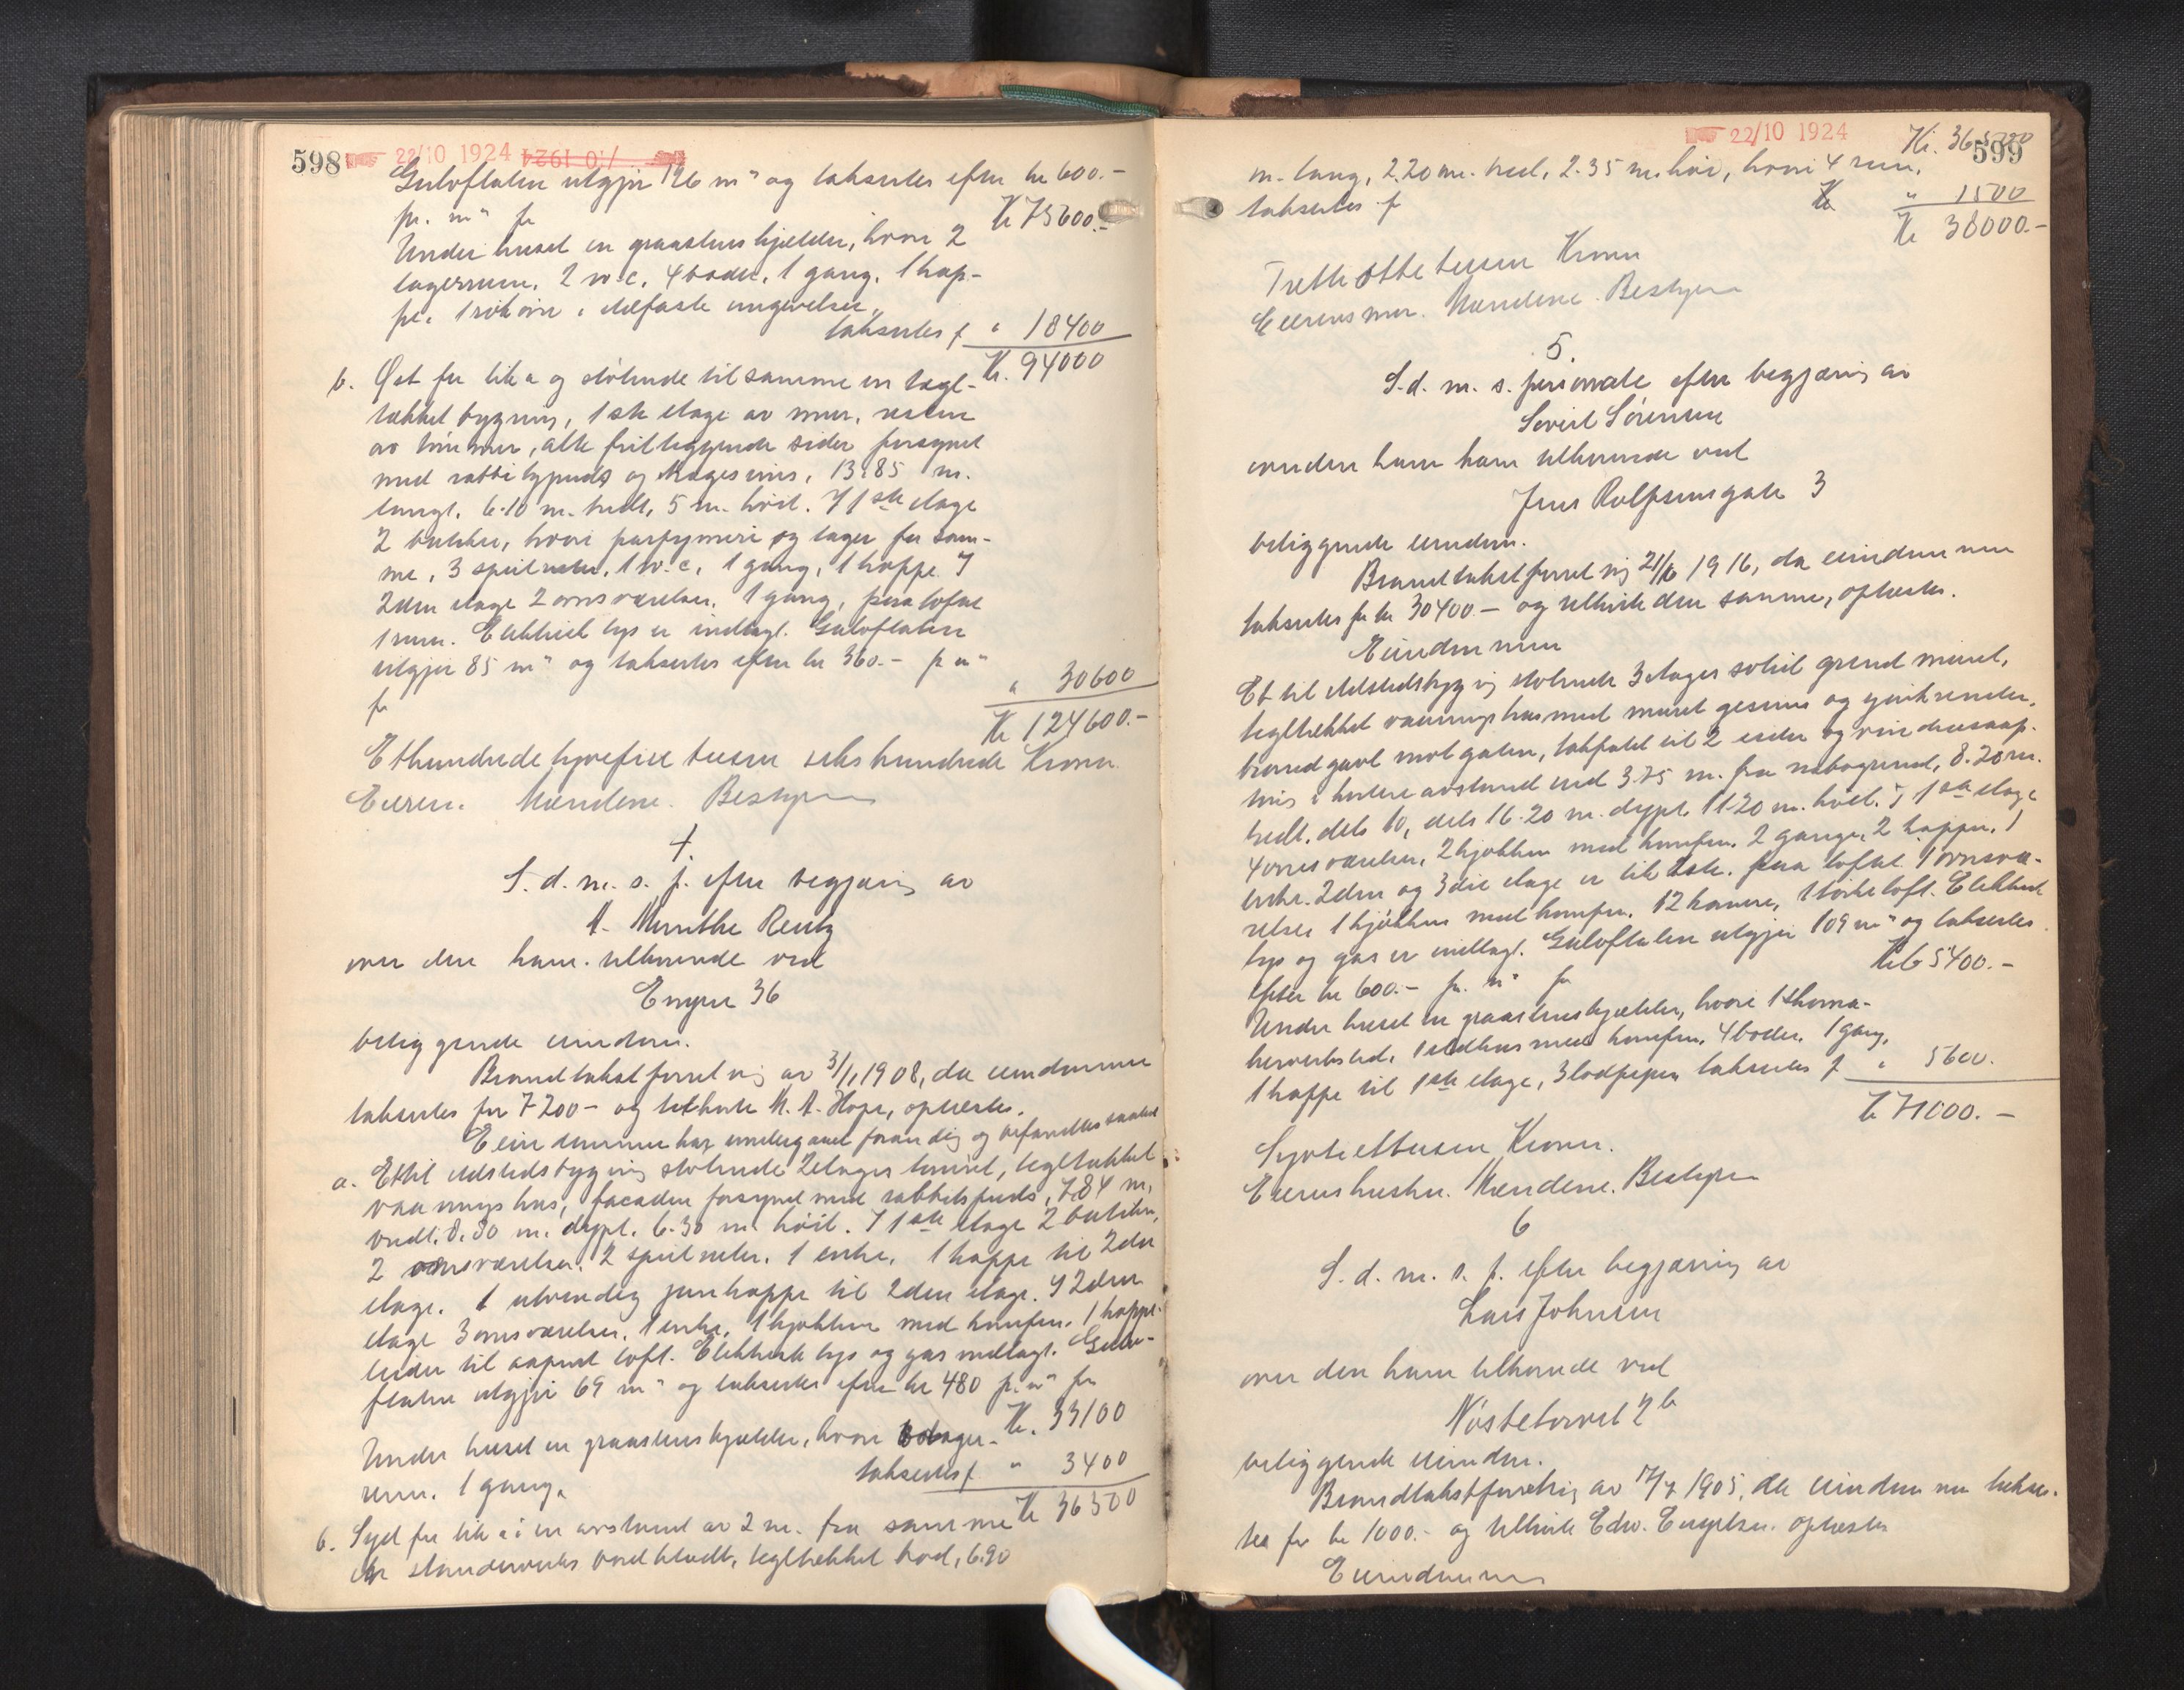 598
22/10 1924
Gulvflaten utgjør 126 m² og takseres efter kr 600.-
pr. m² for Kr 75600.-
Under huset en graastenskjælder, hvori 2
lagerrum, 2 w.c, 4 boder, 1 gang, 1 trap-
pe,
takseres f " 18400
Kr. 94000
b. Øst for lit a og støtende til samme en tegl-
tækket bygning, 1ste etage av mur, resten
av tømmer, alle fritliggende sider forsynet
med rabbitzpuds og gesims, 13.85 m.
langt, 6.10 m. bredt, 5 m. høit. I 1ste etage
2 butikker, hvori parfymeri og lager for sam-
me, 3 speilruter, 1 w.c, 1 gang, 1 trappe. I
2den etage 2 ovnsværelser, 1 gang, paa loftet
1 rum. Elektrisk lys er indlagt. Gulvflaten
utgjør 85 m² og takseres efter kr 360.- p m²
for " 30600
Kr 124600.-
Ethundrede tyvefire tusen seks hundrede Kroner.
Eieren. Mændene. Bestyreren
4.
S. d. m. s. f. efter begjæring av
A. Munthe Rentz
over den ham tilhørende ved
Engen 36
beliggende eiendom.
Brandtakstforretning av 3/1 1908, da eiendommen
takseres for 7200- og tilhørte M. A. Hope, oplæstes.
Eiendommen har undergaaet forandring og befandtes saaledes
a. Et til ildstedsbygning støtende 2 etages tømret, tegltækket
vaaningshus, facaden forsynet med rabbitspuds, 7.84 m.
bredt, 8.80 m. dypt, 6.30 m. høit. I 1ste etage 2 butikker,
2 ovnsværelser, 2 speilruter, 1 entre, 1 trappe til 2den
etage. 1 utvendig jerntrappe til 2den etage. I 2den
etage 3 ovnsværelser, 1 entre, 1 kjøkken med komfur. 1 trappe
leder til aapent loft. Elektrisk lys og gas indlagt. Gulv-
flaten utgjør 69 m² og takseres efter kr 480 p. m² for
Kr. 33100
Under huset en graastenskjælder, hvori lager-
rum, 1 gang, takseres f " 3400
Kr 36500
b. Syd for lit a i en avstand av 2 m. fra samme
en stenderverks bordklædt, tegltækket bod, 6.90
22/10 1924
Kr. 36500
599
m. lang, 2.20 m. bred, 2.35 m. høi, hvori 4 rum,
takseres f " 1500
Kr 38000.-
Tretti otte tusen Kroner
Eierens mor. Mændene. Bestyreren
5.
S. d. m. s. personale efter begjæring av
Sivert Sörensen
over den ham tilhørende ved
Jens Rolfsensgate 3
beliggende eiendom.
Brandtakstforretning 21/6 1916, da eiendommen
takseres for kr 30400.- og tilhørte den samme, oplæstes.
Eiendommen
Et til ildstedsbygning støtende 3 etages solid grundmuret,
tegltækket vaaningshus med muret gesims og zinkrender,
brandgavl mot gaten, takfald til 2 sider og vinduesaap-
ning i kortere avstand end 3.75 m. fra nabogrund, 8.20 m.
bredt, dels 10, dels 16.20 m. dypt, 11.20 m. høit. I 1ste etage
4 ovnsværelser, 2 kjøkken med komfur, 2 gange, 2 trapper, 1
entre. 2den og 3die etage er lik 1ste. Paa loftet 1 ovnsvæ-
relse, 1 kjøkken med komfur, 12 kamre, 1 tørkeloft. Elektrisk
lys og gas er indlagt. Gulvflaten utgjør 109 m² og takseres
efter kr 600.- pr. m² for Kr 65400.-
Under huset en graastenskjælder, hvori 1 skoma-
kerverksted, 1 ildhus med komfur, 4 boder, 1 gang,
1 trappe til 1ste etage, 3 lodpiper takseres f " 5600.
Kr 71000.-
Syttiettusen Kroner.
Eierens hustru. Mændene. Bestyreren
6
S. d. m. s. p. efter begjæring av
Lars Johnsen
over den ham tilhørende ved
Nöstetorvet 2b
beliggende eiendom.
Brandtakstforretning av 17/7 1905, da eiendommen takse-
res for kr 1000.- og tilhørte Edv. Engelsen, oplæstes
Eiendommen